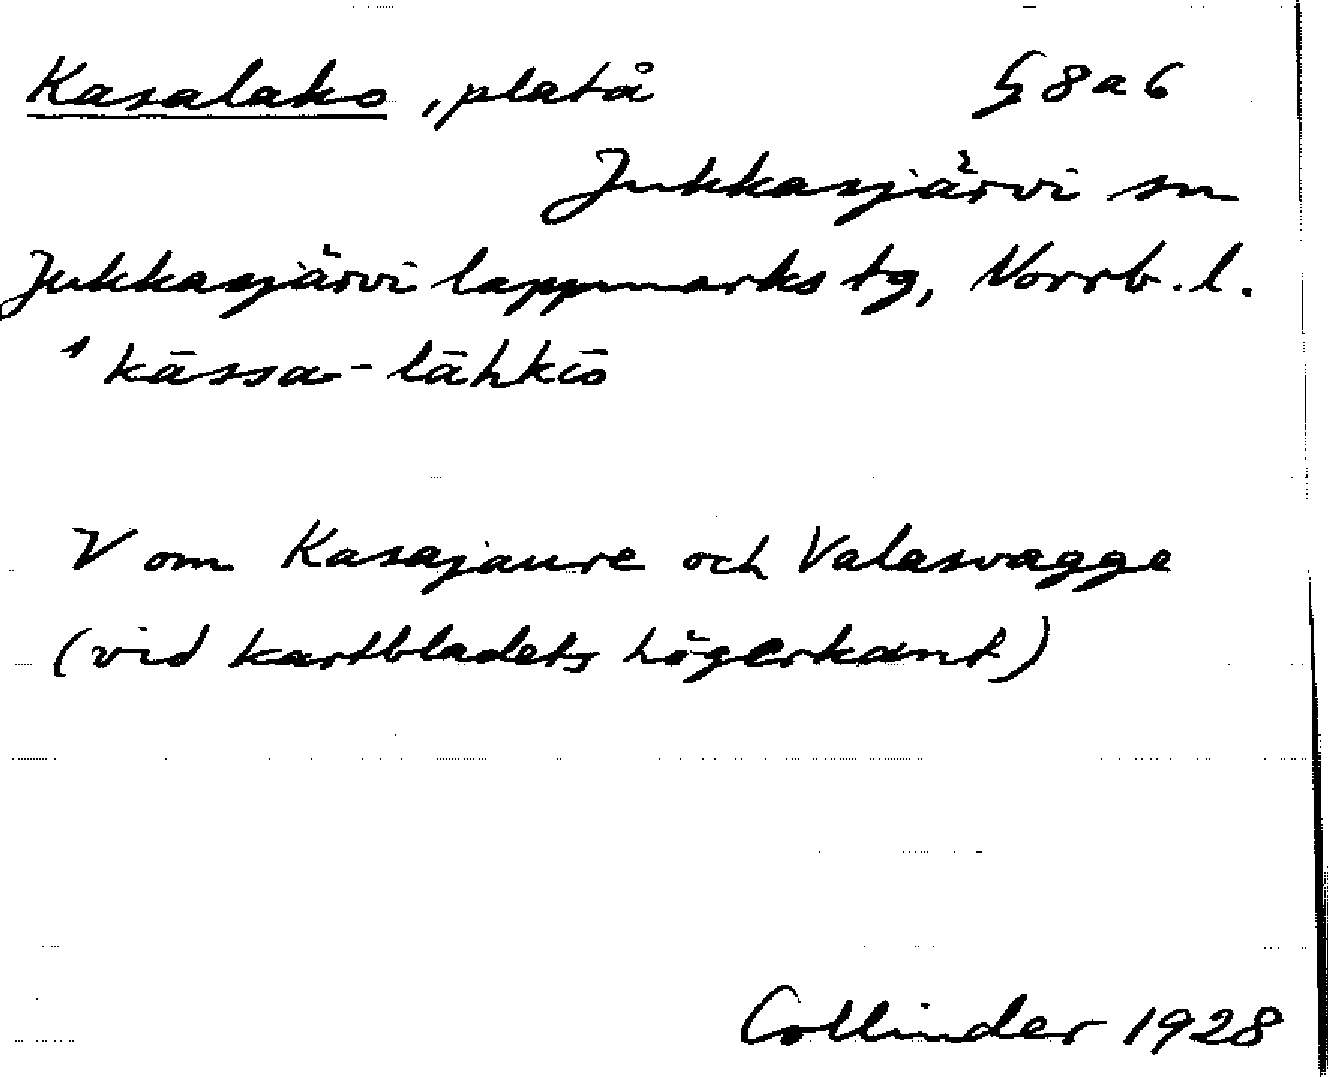 Kasalako, platå G 8 a 6
Jukkasjärvi sn
Jukkasjärvi lappmarks tg, Norrb. l.
¹ kāssa-lāhkō
V om Kasajaure och Valasvagge
(vid kartbladets högerkant)
Collinder 1928